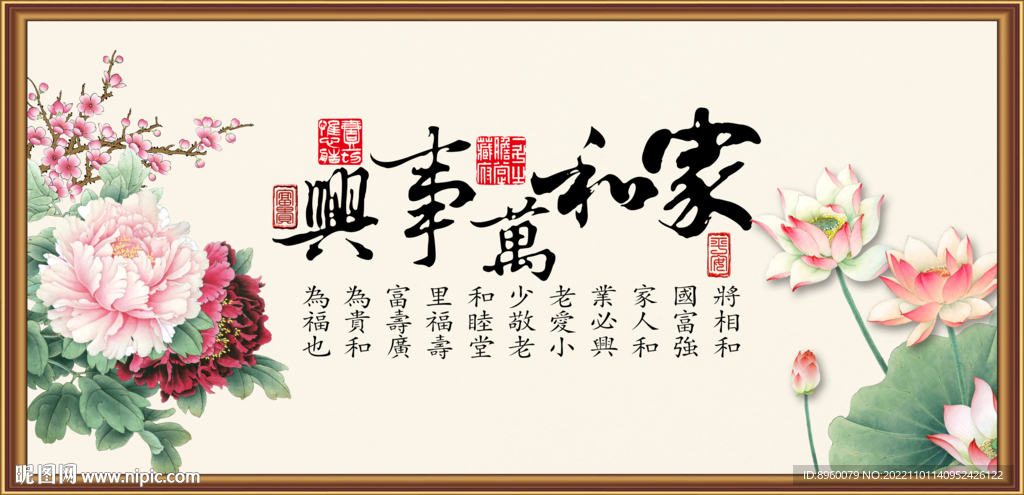 家和萬事興
平安
富貴
將相和
國富強
家人和
業必興
老愛小
少敬老
和睦堂
里福壽
富壽廣
為貴和
為福也
昵图网 www.nipic.com
ID:8960079 NO:20221101140952426122